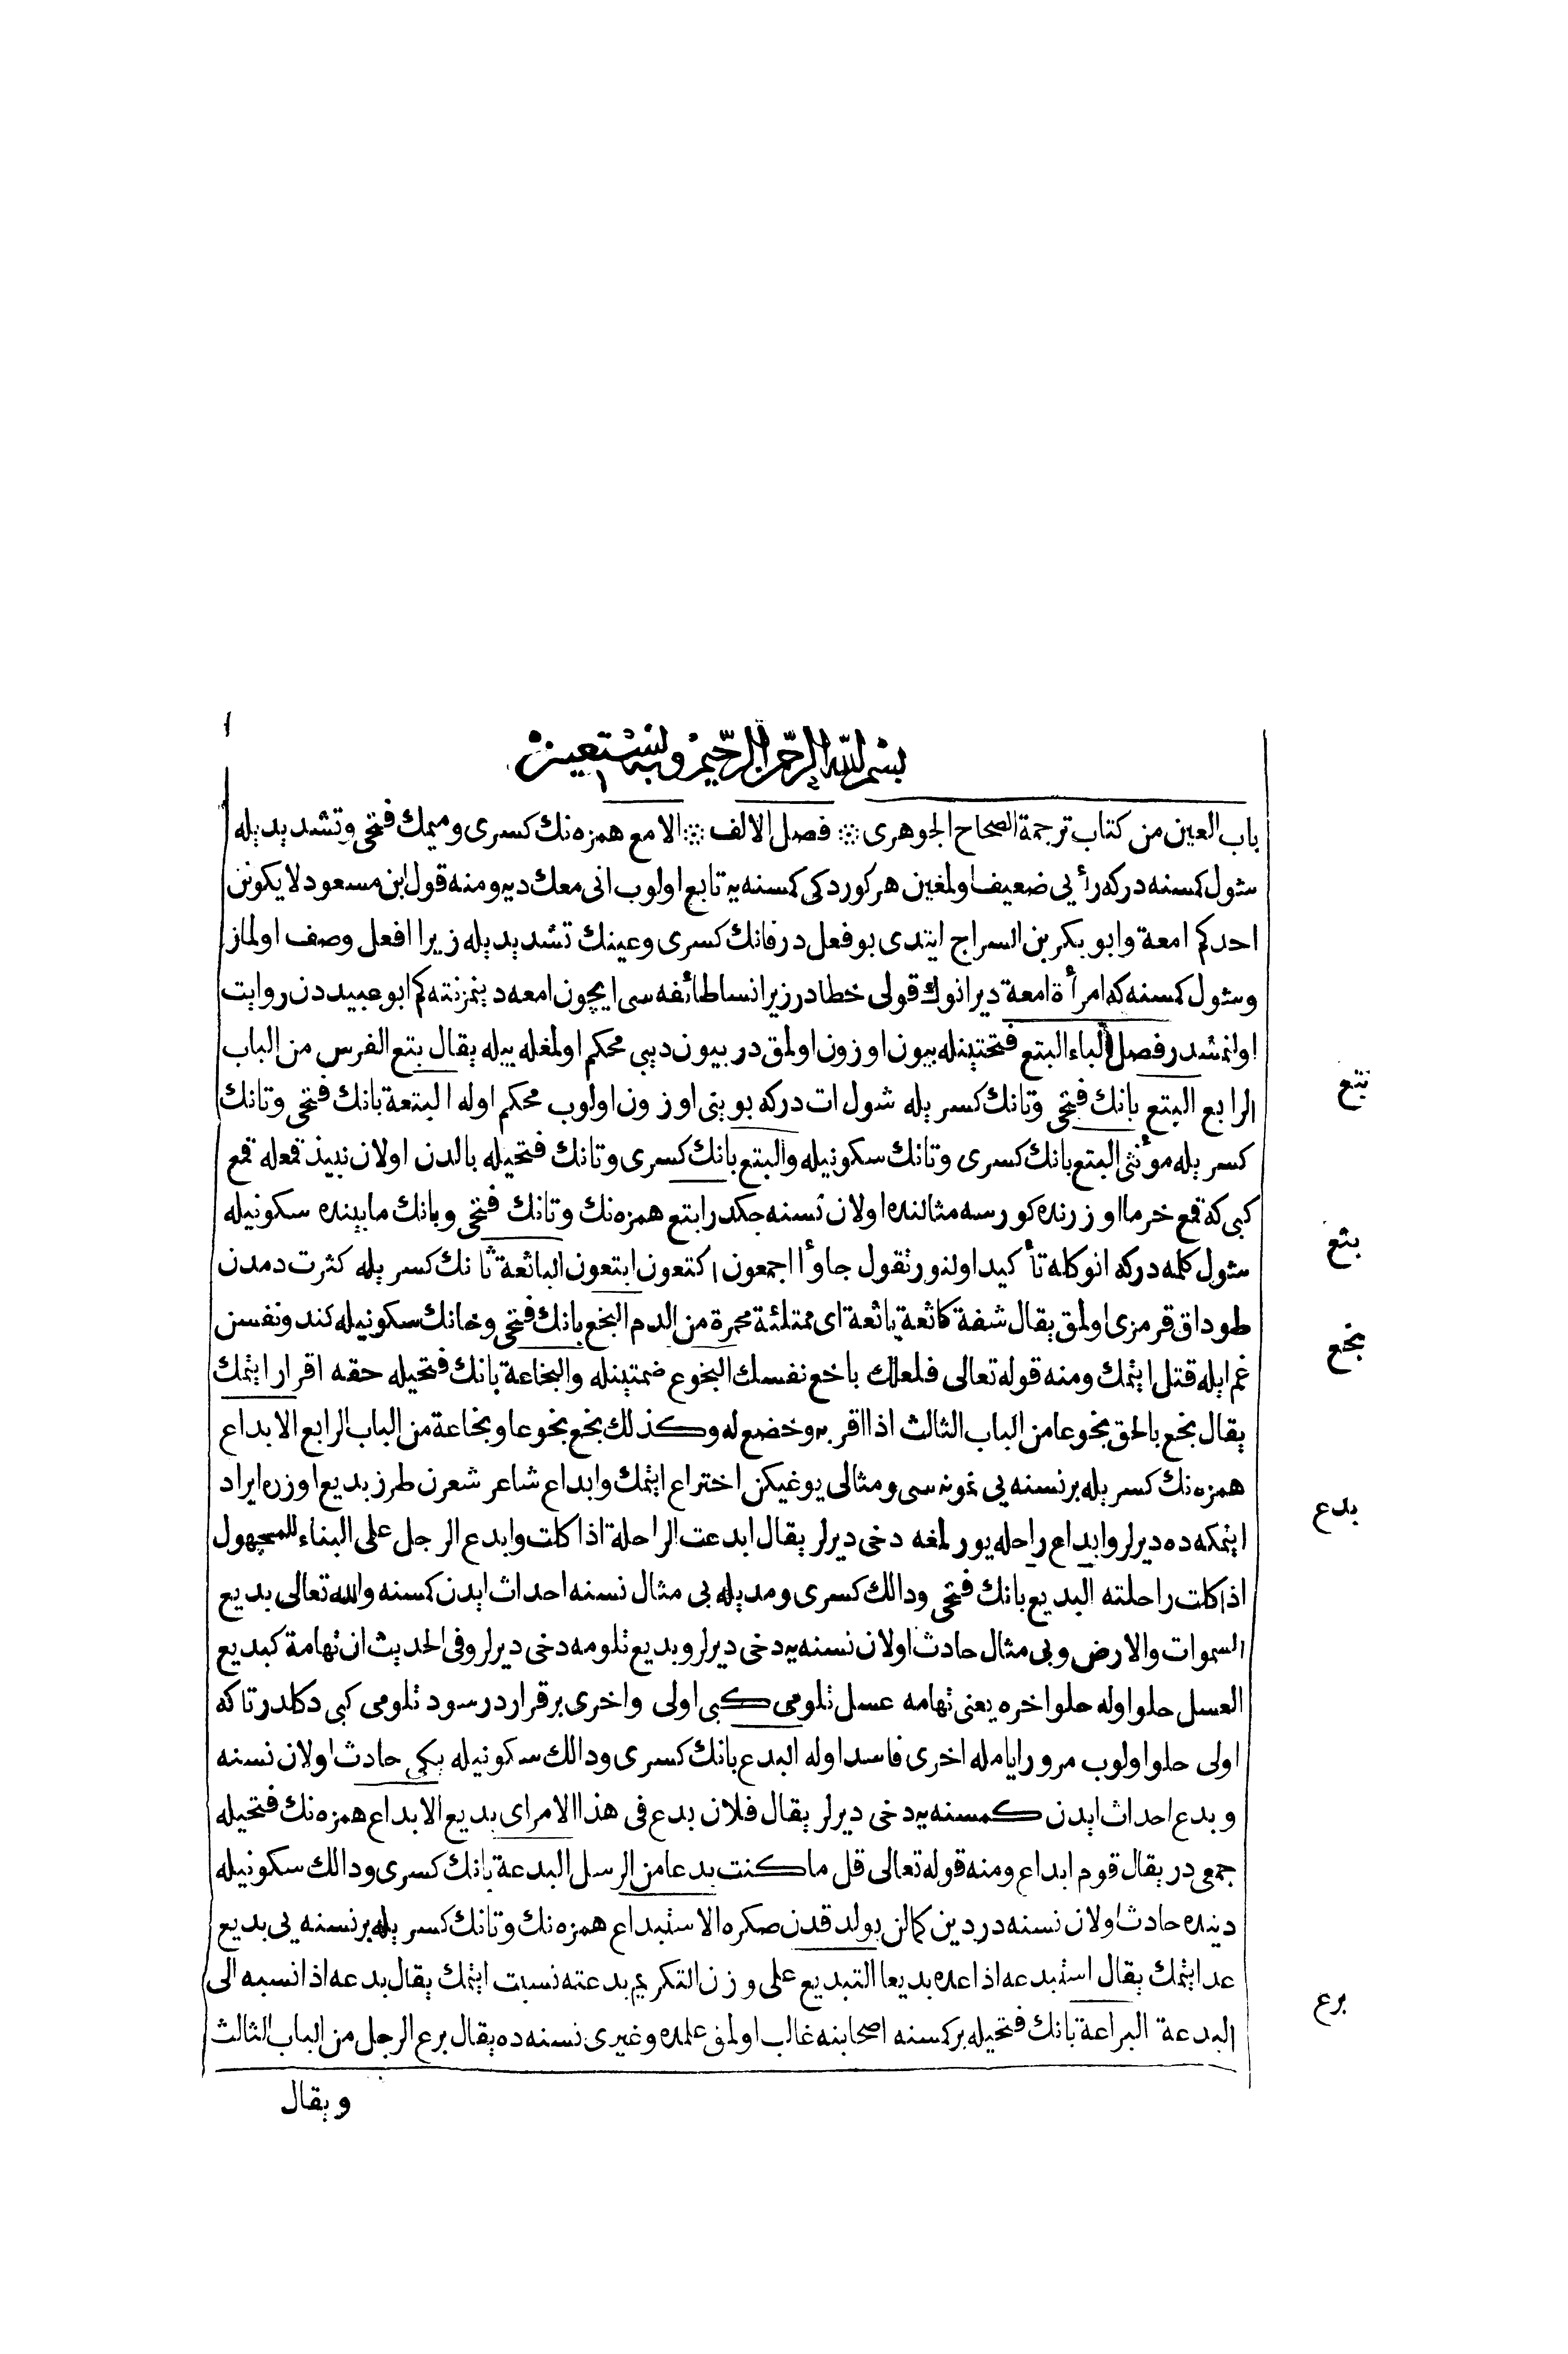 بسم الله الرحمن الرحيم وبه نستعين
باب العين من كتاب ترجمة الصحاح الجوهرى فصل الالف الامع همزه نك كسرى وميمك فتحى وتشديديله
شول كسنه دركه رأيى ضعيف اولمغين هركوردكى كسنه يه تابع اولوب انى معك ديه ومنه قول ابن مسعود لا يكونن
احدكم امعة وابو بكر بن السراج ايتدى بو فعل در فانك كسرى وعينك تشديديله زيرا افعل وصف اولماز
وشول كسنه كه امرأة امعة دير انوك قولى خطادر زيرا نسا طائفه سى ايچون امعه دينمز نته كم ابو عبيددن روايت
اولنمشدر فصل الباء البتع فتحتينله بيون اوزون اولمق در بيون ديبى محكم اولمغله بيله يقال بتع الفرس من الباب
الرابع البتع بانك فتحى وتانك كسريله شول ات دركه بوينى اوزون اولوب محكم اوله البتعة بانك فتحى وتانك
كسريله مؤنثى البتع بانك كسرى وتانك سكونيله والبتع بانك كسرى وتانك فتحيله بالدن اولان نبيذ قمعله قمع
كبى كه قمع خرما اوزرنده كورسه مثالنده اولان نسنه جكدر ابتع همزه نك وتانك فتحى وبانك مابينده سكونيله
شول كلمه دركه انوكله تأكيد اولنور تقول جاوأ اجمعون اكتعون ابتعون الباثعة ثانك كسريله كثرت دمدن
طوداق قرمزى اولمق يقال شفة كاثعة باثعة اى ممتلئة محمرة من الدم البخع بانك فتحى وخانك سكونيله كندو نفسن
غم ايله قتل ايتمك ومنه قوله تعالى فلعلك باخع نفسك البخوع ضمتينله والبخاعة بانك فتحيله حقه اقرار ايتمك
يقال بخع بالحق بخوعا من الباب الثالث اذا اقر به وخضع له وكذلك بخع بخوعا وبخاعة من الباب الرابع الابداع
همزه نك كسريله بر نسنه يى نمونه سى ومثالى يوغيكن اختراع ايتمك وابداع شاعر شعرن طرز بديع اوزره ايراد
ايتمكه ده ديرلر وابداع راحله يورلمغه دخى ديرلر يقال ابدعت الراحلة اذا كلت وابدع الرجل على البناء للمجهول
اذا كلت راحلته البديع بانك فتحى ودالك كسرى ومديله بى مثال نسنه احداث ايدن كسنه والله تعالى بديع
السموات والارض وبى مثال حادث اولان نسنه يه دخى ديرلر وبديع تلومه دخى ديرلر وفى الحديث ان تهامة كبديع
العسل حلو اوله حلو اخره يعنى تهامه عسل تلومى كبى اولى واخرى برقراردر سود تلومى كبى دكلدر تاكه
اولى حلو اولوب مرور ايامله اخرى فاسد اوله البدع بانك كسرى ودالك سكونيله يكى حادث اولان نسنه
وبدع احداث ايدن كمسنه يه دخى ديرلر يقال فلان بدع فى هذا الامر اى بديع الابداع همزه نك فتحيله
جمعى در يقال قوم ابداع ومنه قوله تعالى قل ما كنت بدعا من الرسل البدعة بانك كسرى ودالك سكونيله
دينده حادث اولان نسنه در دين كمالن بولدقدن صكره الاستبداع همزه نك وتانك كسريله بر نسنه يى بديع
عد ايتمك يقال استبدعه اذا عده بديعا التبديع على وزن التكريم بدعته نسبت ايتمك يقال بدعه اذا نسبه الى
البدعة البراعة بانك فتحيله بر كسنه اصحابنه غالب اولمق علمده وغيرى نسنه ده يقال برع الرجل من الباب الثالث
ويقال
بتع
بثع
بخع
بدع
برع